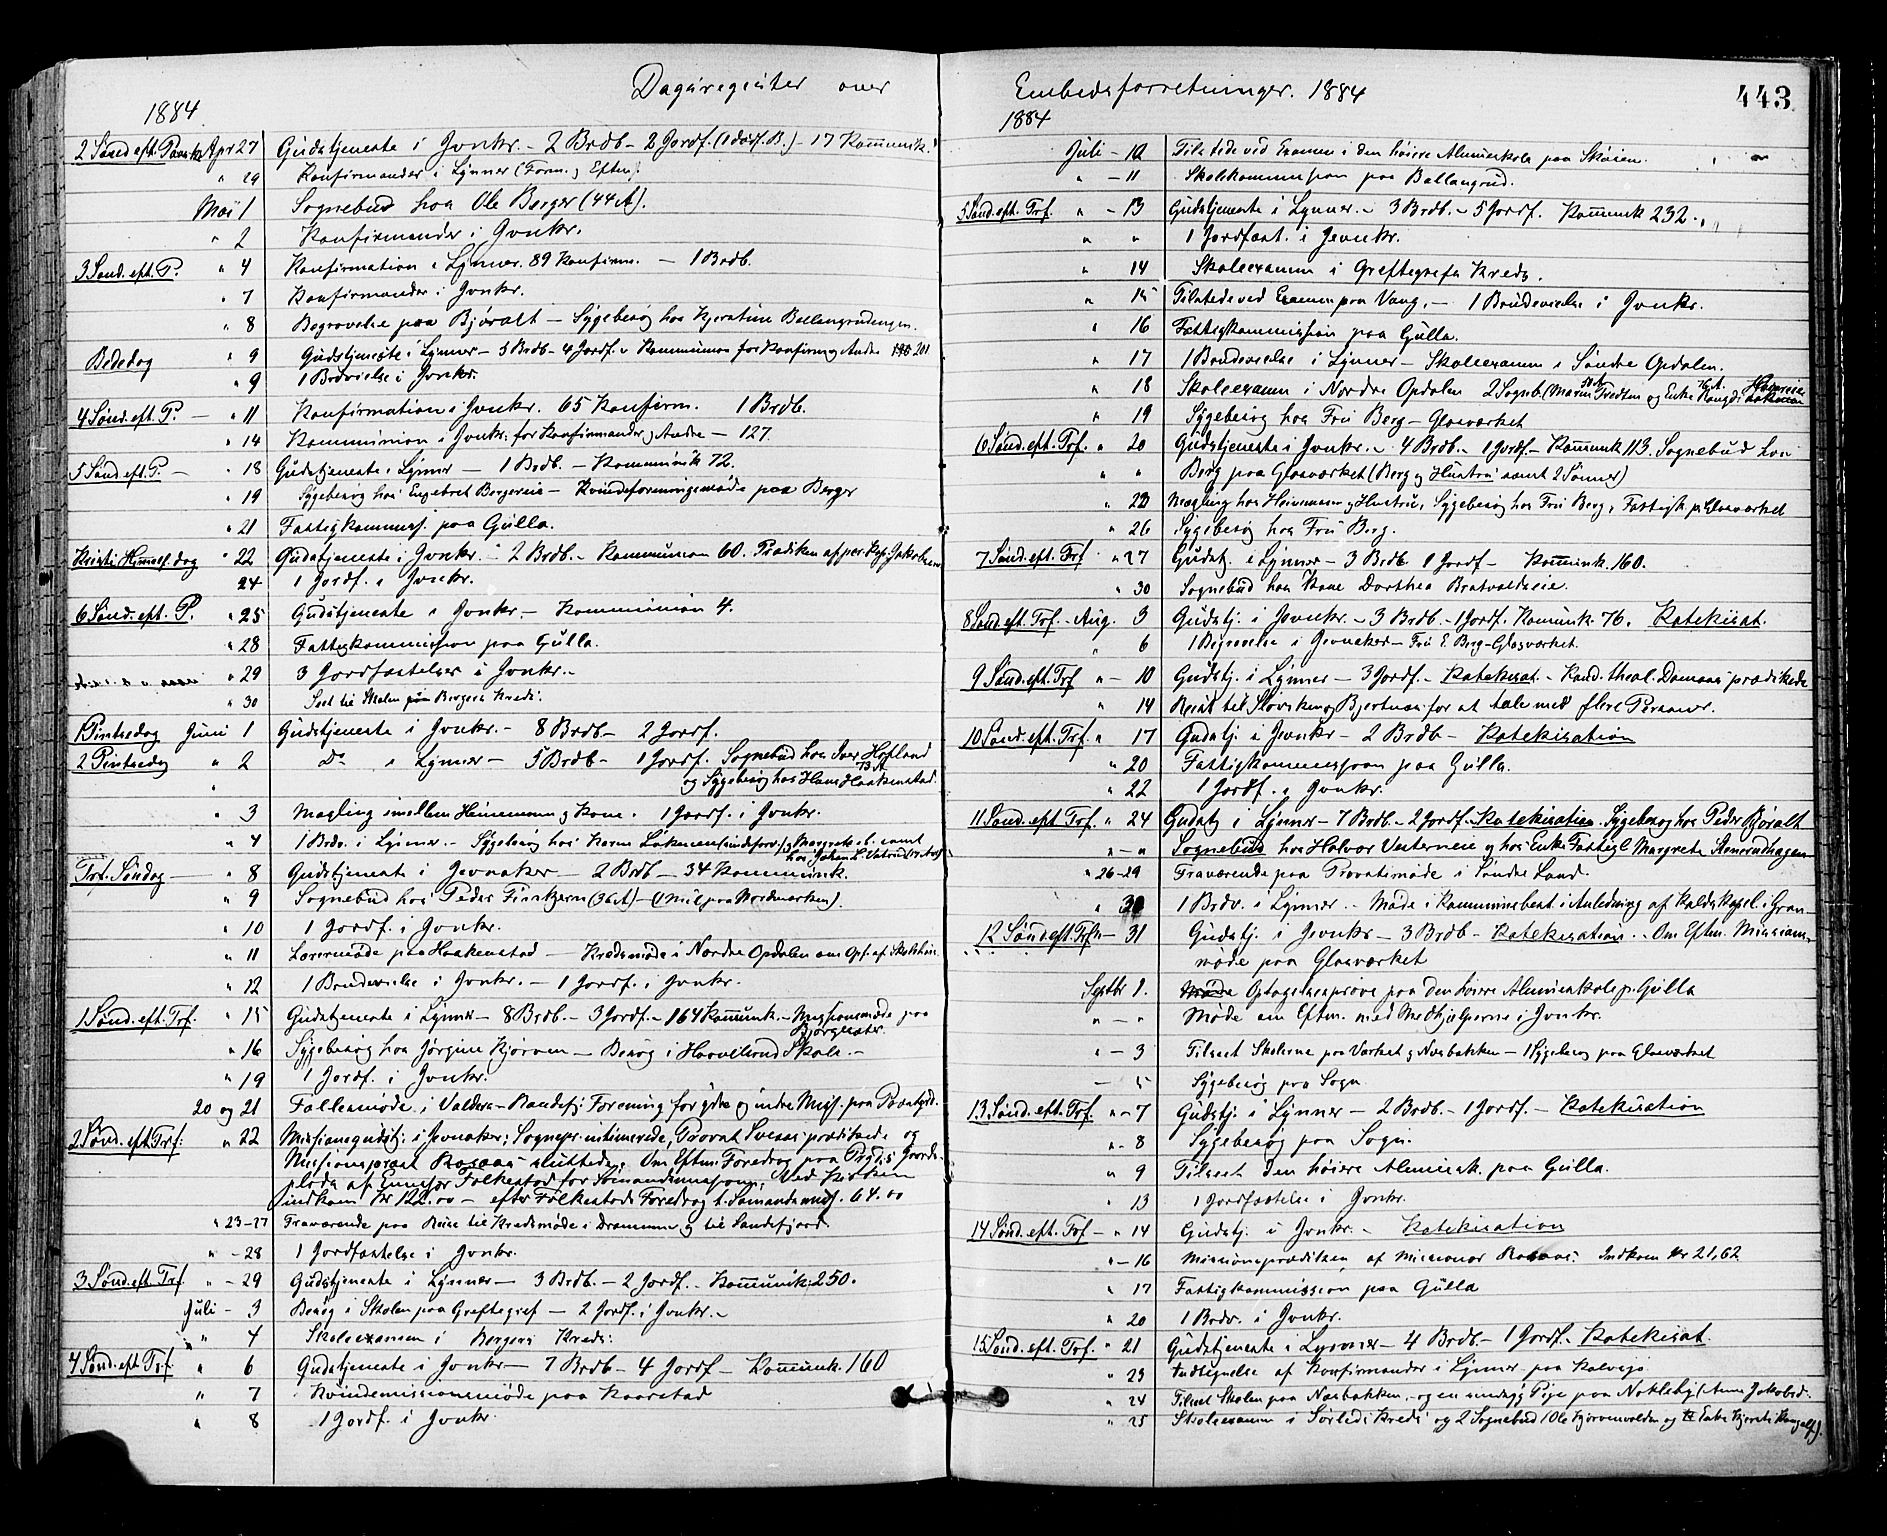 Dagsregister over
1884
2 Sønd. eft. Paask. Apr 27 Gudstjeneste i Jvnkr. – 2 Brdb – 2 Jordf. (1 døds. B.) – 17 Kommunik.
" 29 Konfirmander i Lynner (Form. og Efterm.)
Mai 1 Sognebud hos Ole Berger (44 A).
" 2 Konfirmander i Jvnkr.
3 Sønd. eft. P. " 4 Konfirmation i Lynner. 89 Konfirm. – 1 Brdb.
" 7 Konfirmander i Jvnkr.
" 8 Begravelse paa Bjøralt – Sygebesøg hos Kjerstine Ballangrudengen.
Bededag " 9 Gudstjeneste i Lynner – 5 Brdb – 4 Jordf. Kommunion for Konfirm og Andre 201
" 9 1 Brdvielse i Jvnkr.
4 Sønd. eft. P. – " 11 Konfirmation i Jvnkr. 65 Konfirm. 1 Brdb.
" 14 Kommunion i Jvnkr. for Konfirmander og Andre – 127.
5 Sønd. eft. P. – " 18 Gudstjeneste i Lynner – 1 Brdb. – Kommunik 72.
" 19 Sygebesøg hos Engebret Bergereie – Kvindeforeningsmøde paa Berger
" 21 Fattigkommiss. paa Gulla.
Kristi Himmelf. dag " 22 Gudstjeneste i Jvnkr. – 2 Brdb. – Kommunion 60. Prædiken af per. Kap. Jakobsen
24 1 Jordf. i Jvnkr.
6 Sønd. eft. P. " 25 Gudstjeneste i Jvnkr – Kommunion 4.
" 28 Fattigkommission paa Gulla.
" 29 3 Jordfæstelser i Jvnkr.
" 30 Seet til Skolen paa Bergers Kreds.
Pintsedag Juni 1 Gudstjeneste i Jvnkr. – 8 Brdb – 2 Jordf.
2 Pintsedag " 2 Do i Lynner – 5 Brdb – 1 Jordf. Sognebud hos Iver Hofland
og Sygebesøg hos Hans Haakenstad.
" 3 Mægling imellem Heinemann og Kone. 1 Jordf. i Jvnkr.
" 4 1 Brdv. i Lynner – Sygebesøg hos Karen Løkeneie
Tref. Søndag – " 8 Gudstjeneste i Jevnaker – 2 Brdb – 34 Kommunik.
" 9 Sognebud hos Peder Finskjern (36 A) – (1 Mil paa Nordmarken).
" 10 1 Jordf. i Jvnkr.
" 11 Lærermøde paa Haakenstad – Kredsmøde i Nordre Opdalen om Opf. af Skolehus.
" 12 1 Brudevielse i Jvnkr. – 1 Jordf. i Jvnkr.
1 Sønd. eft. Tref. " 15 Gudstjeneste i Lynner – 8 Brdb. – 3 Jordf. – 164 Kommunik. – Missionsmøde paa
Bjørgesæter
" 16 Sygebesøg hos Jørgine Kjørven – Besøg i Haavelsrud Skole. –
" 19 1 Jordf. i Jvnkr.
20 og 21 Fællesmøde i Valders-Randsfj. Forening for ydre og indre Miss. paa Præstgd.
2 Sønd. eft. Tref. " 22 Missionsgudstj. i Jevnaker; Sognepr. intimerede, Provst Svenss prædikede og
Missionsprest Rosaas sluttede. Om Eftm. Foredrag paa Prgds. Gaards-
plads af Emissær Folkestad for Sømandsmissionen. Ved Kirken
indkom Kr 122.00 – efter Folkestads Foredrag t. Sømandsmiss. 64.00
" 23–27 Fraværende paa Reise til Kredsmøde i Drammen og til Sandefjord.
" – 28 1 Jordfæstelse i Jvnkr.
3 Sønd. eft. Tref " – 29 Gudstjeneste i Lynner – 3 Brdb. – 2 Jordf. – Kommunik. 250.
Juli – 3 Besøg i Skolen paa Greftegref – 2 Jordf. i Jvnkr. –
" 4 Skoleexamen i Bergers Kreds.
4 Sønd. eft Tref. " 6 Gudstjeneste i Jvnkr – 7 Brdb – 4 Jordf – Kommunik. 160
" 7 Kvindemissionsmøde paa Kaarstad
" 8 1 Jordf. i Jvnkr.
Embedsforretninger. 1884
443
1884
Juli – 10 Tilstede ved Examen i den høiere Almueskole paa Skøien.
" – 11 Skolekommission paa Ballangrud.
5 Sønd. eft. Tref. " – 13 Gudstjeneste i Lynner. – 3 Brdb. – 5 Jordf. Kommunik 232.
" " 1 Jordfæst. i Jevnkr.
" 14 Skoleexamen i Greftegrefs Kreds.
" 15 Tilstede ved Examen paa Vang. – 1 Brudevielse i Jvnkr.
" 16 Fattigkommission paa Gulla.
" 17 1 Brudevielse i Lynner – Skoleexamen i Søndre Opdalen.
" 18 Skoleexamen i Nordre Opdalen 2 Sogneb.
" 19 Sygebesøg hos Fru Berg – Glasværket
6 Sønd. eft. Tref. " 20 Gudstjeneste i Jvnkr. – 4 Brdb. – 1 Jordf. – Kommunik 113. Sognebud hos
" " Berg paa Glasværket (Berg og Hustru samt 2 Sønner)
" 22 Mægling hos Heinemann og Hustru, Sygebesøg hos Fru Berg, Fattigk. p. Glasværket
" 26 Sygebesøg hos Fru Berg.
7 Sønd. eft. Tref " 27 Gudstj. i Lynner – 3 Brdb 1 Jordf – Kommunik. 160.
" 30 Sognebud hos Kone Dorthea Bratvoldseie.
8 Sønd. eft. Tref. – Aug. 3 Gudstj. i Jevnkr. – 3 Brdb – 1 Jordf. Komunik. 76. Katekisat.
" 6 1 Begravelse i Jevnaker – Fru E. Berg – Glasværket.
9 Sønd. eft. Tref " – 10 Gudstj. i Lynner – 3 Jordf. – Katekisat. – Kand. theol. Domaas prædikede
" 14 Reist til Sløvika og Bjertnæs for at tale med flere Personer.
10 Sønd. eft. Tref. " 17 Gudstj. i Jevnkr – 2 Brdb – Katekisation
" 20 Fattigkommission paa Gulla.
" 22 1 Jordf. i Jvnkr.
11 Sønd. eft. Tref. " 24 Gudstj i Lynner – 7 Brdb – 2 Jordf. Katekisation. Sygebesøg hos Peder Bjøralt
" – " Sognebud hos Halvor Vesterneie og hos Enke Fattigl. Margrete Stenerudhagen
" 26–29 Fraværende paa Provstimøde i Søndre Land.
" 30 1 Brdv. i Lynner – Møde i Kommunebest. i Anledning af Kalds Kapel. i Gran –
12 Sønd. eft. Tref " – 31 Gudstj. i Jevnkr – 3 Brdb – Katekisation. – Om Eftm. Missions-
møde paa Glasværket
Septbr 1. Møde Optagelsesprøve paa den høiere Almueskole p. Gulla
" – " Møde om Eftm. med Medhjælperne i Jvnkr.
" – 3 Tilseet Skolerne paa Værket og Næsbakken – 1 Sygebesøg paa Glasværket
– 5 Sygebesøg paa Sogn
13 Sønd. eft. Tref. " – 7 Gudstj. i Lynner – 2 Brdb. – 1 Jordf. – Katekisation
" – 8 Sygebesøg paa Sogn.
" 9 Tilseet den høiere Almuesk. paa Gulla.
" 13 1 Jordfæstelse i Jvnkr.
14 Sønd. eft. Tref – " 14 Gudstj. i Jvnkr. – Katekisation
" – 16 Missionsprædiken af Missionær Rosaas. Indkom Kr 21,62
" 17 Fattigkommission paa Gulla
" 20 1 Brdv. i Jvnkr.
15 Sønd. eft. Tref. " 21 Gudstjeneste i Lynner – 4 Brdb – 1 Jordf. Katekisat.
" 23 Indtegnelse af Konfirmander i Lynner paa Kalvsjø
" 24 Tilseet Skolen paa Næsbakken – og en sindssyg Pige paa Nøkleby (Anne Jakobsd.
" 25 Skoleexamen i Sørlids Kreds og 2 Sognebud (Ole Kjørvenvolden og Enke Kjersti